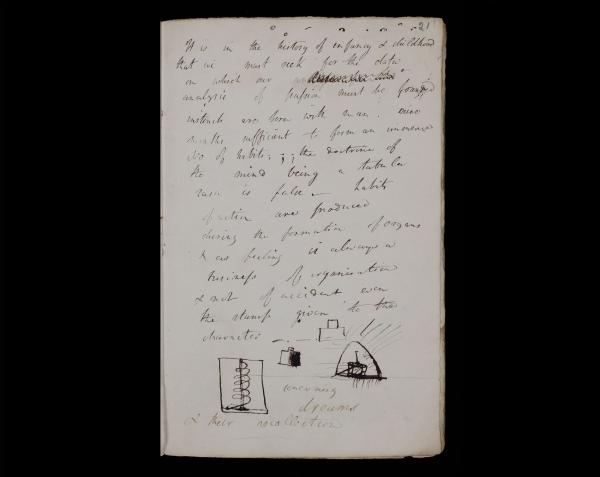 21
It is in the history of infancy & childhood
that we must seek for the data
on which our
analysis of passion must be founded
instincts are born with man. nine
months sufficient to form an immense
No of habits. ; ; the doctrine of
the mind being a tabula
rasa is false – habits
of action are produced
during the formation of organs
& as feeling is always a
business of organisation
& not of accident even
the stamp given to the
character
concerning
dreams
& their recollection